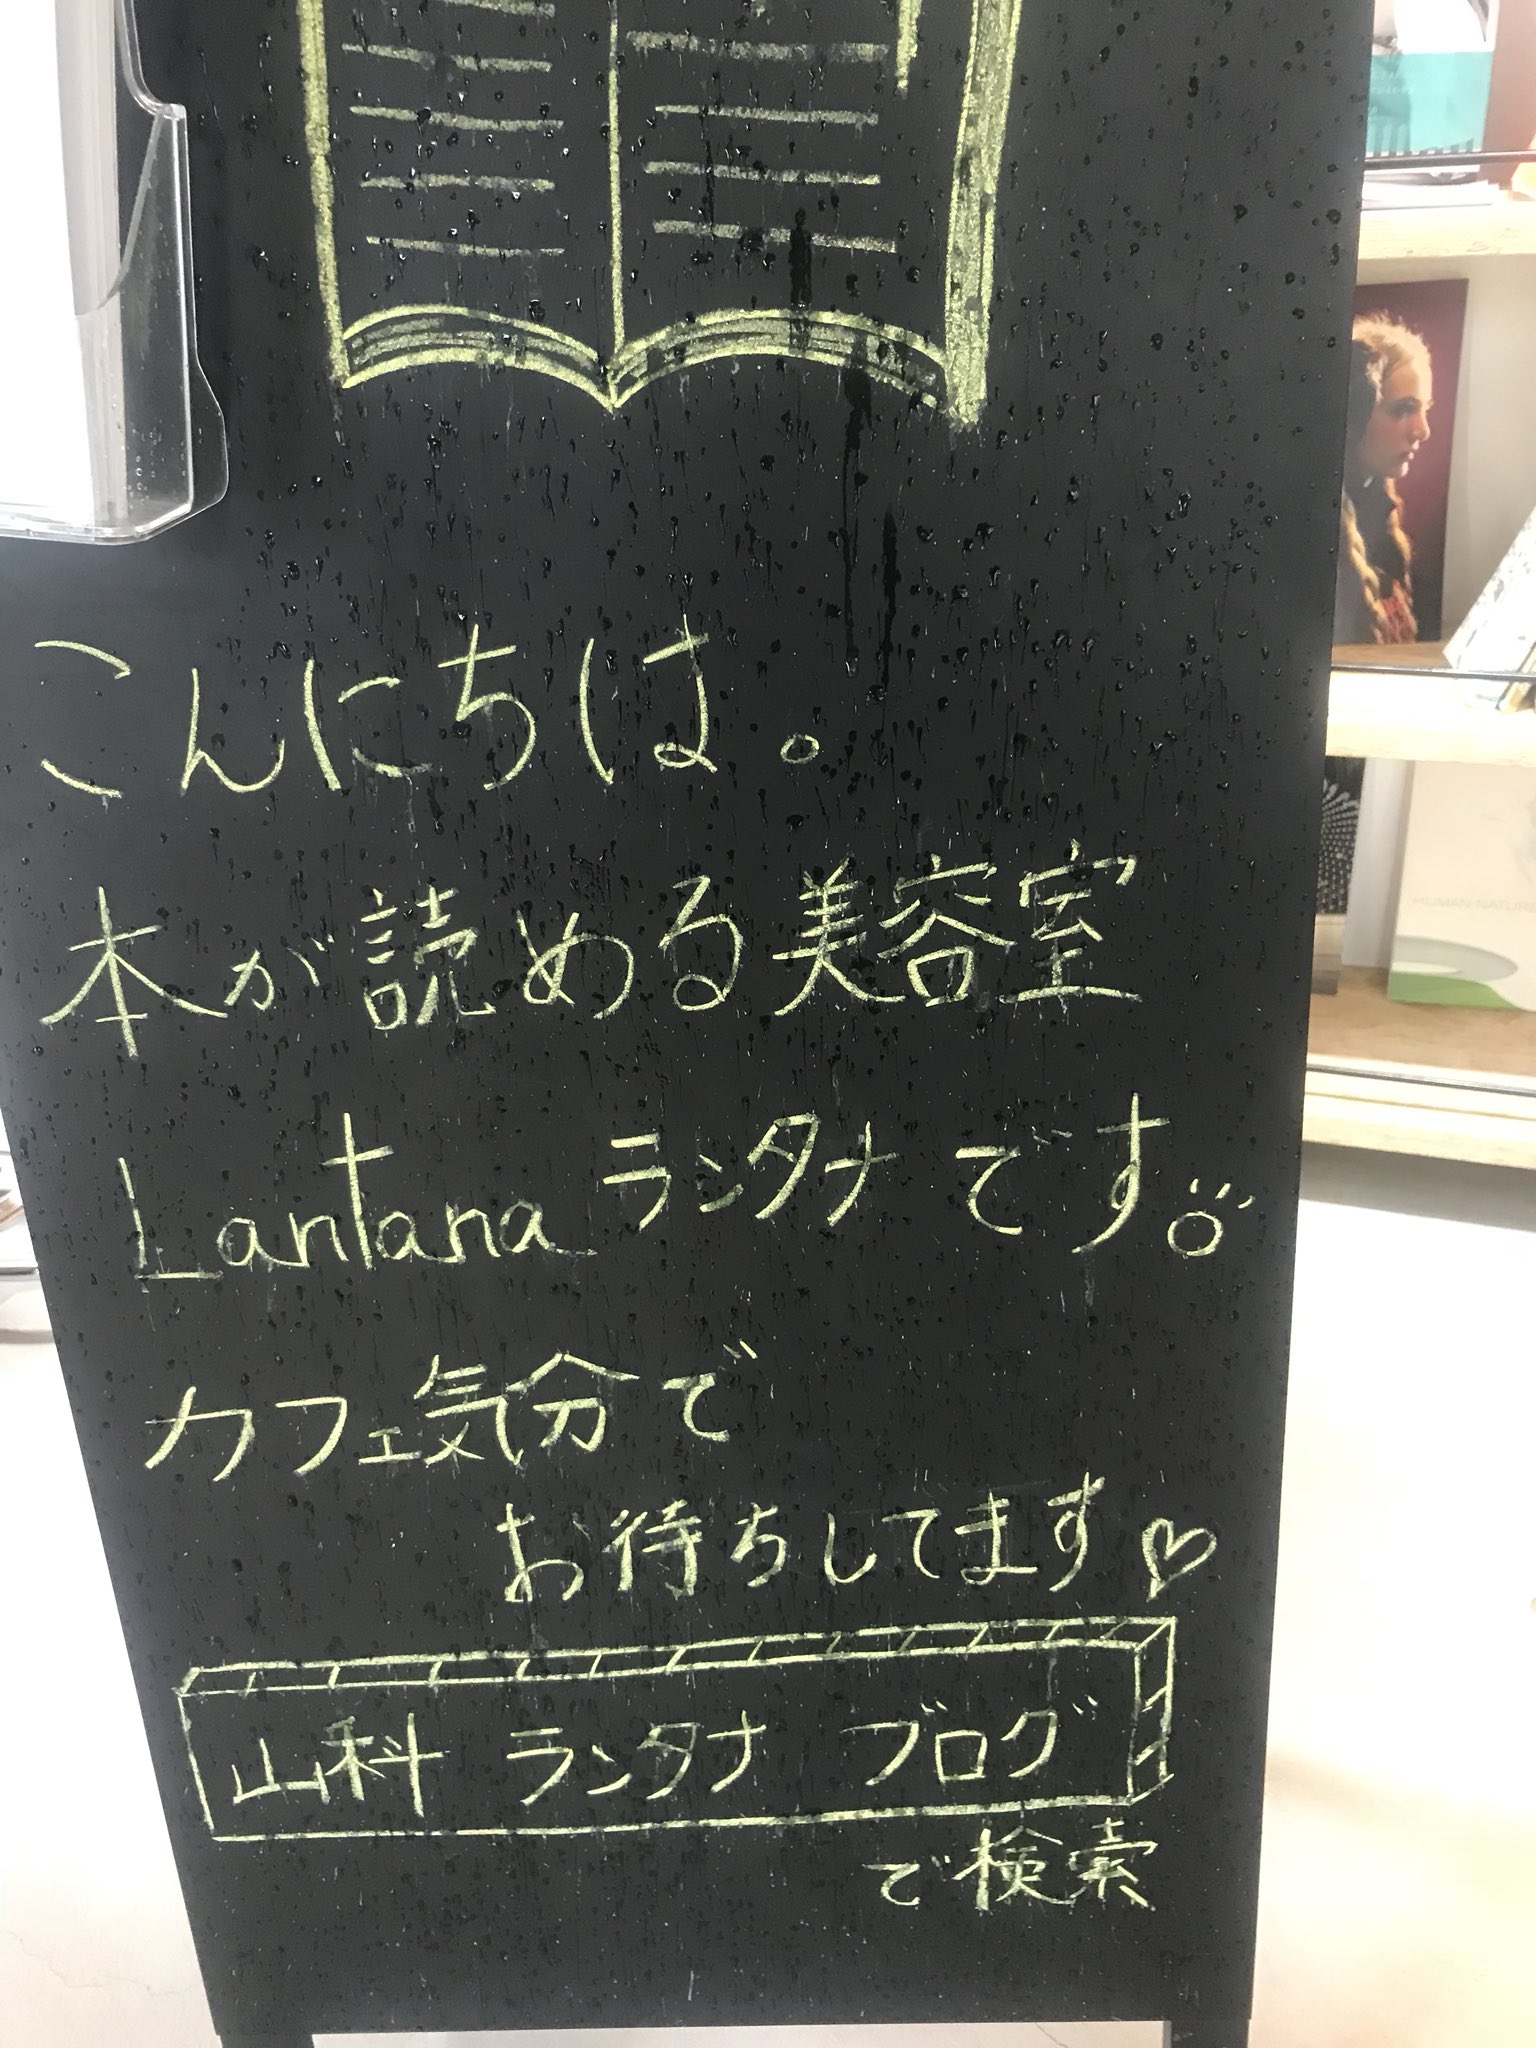 こんにちは。
本が読める美容室
Lantana ランタナです。
カフェ気分で
お待ちしてます♡
山科 ランタナ ブログ
で検索
HUMAN NATURE